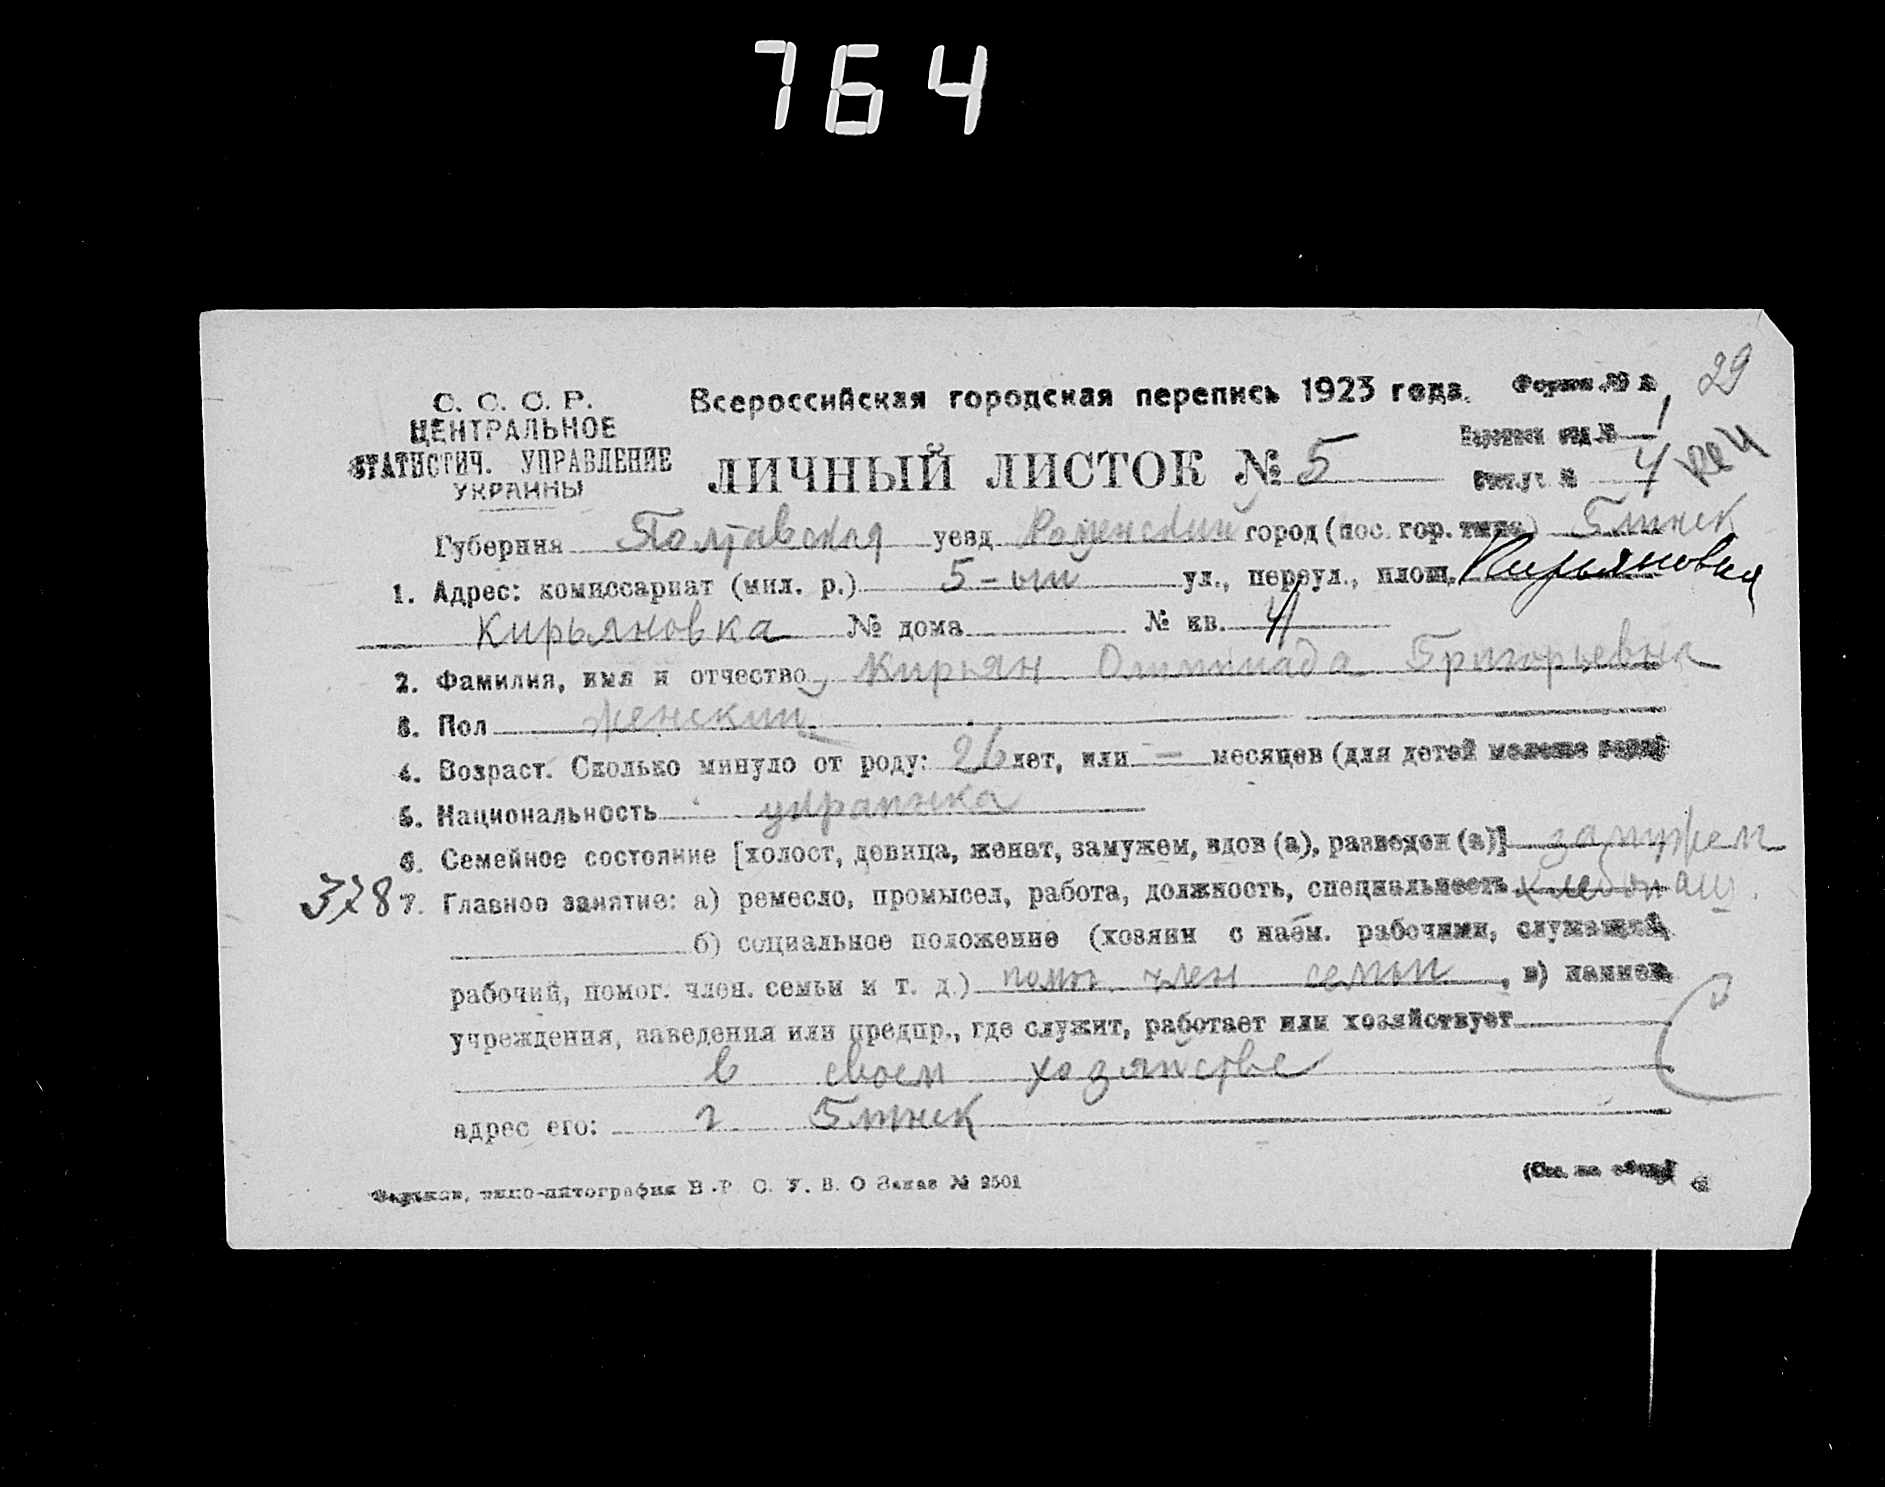 764
29
С. С. С. Р.
ЦЕНТРАЛЬНОЕ
СТАТИСТИЧ. УПРАВЛЕНИЕ
УКРАИНЫ
Всероссийская городская перепись 1923 года.
Форма № 2
1
ЛИЧНЫЙ ЛИСТОК № 5
4
Губерния Полтавская уезд Роменский город (пос. гор. типа) Глинск
1. Адрес: комиссариат (мил. р.) 5-ый ул., переул., площ. Кирьяновка
Кирьяновка № дома № кв. 4
2. Фамилия, имя и отчество Кирьян Олимпиада Григорьевна
3. Пол женский
4. Возраст. Сколько минуло от роду: 26 лет, или — месяцев (для детей
5. Национальность украинка
6. Семейное состояние [холост, девица, женат, замужем, вдов (а), разведен (а)] замужем
378 7. Главное занятие: а) ремесло, промысел, работа, должность, специальность хлебопаш.
б) социальное положение (хозяин с наём. рабочими, служащий,
рабочий, помог. член. семьи и т. д.) пом. член семьи, в) наимен.
учреждения, заведения или предпр., где служит, работает или хозяйствует
в своем хозяйстве
адрес его: г Глинск
Харьков, типо-литография В. Р. С. У. В. О Заказ № 2501
(См. на обор.)